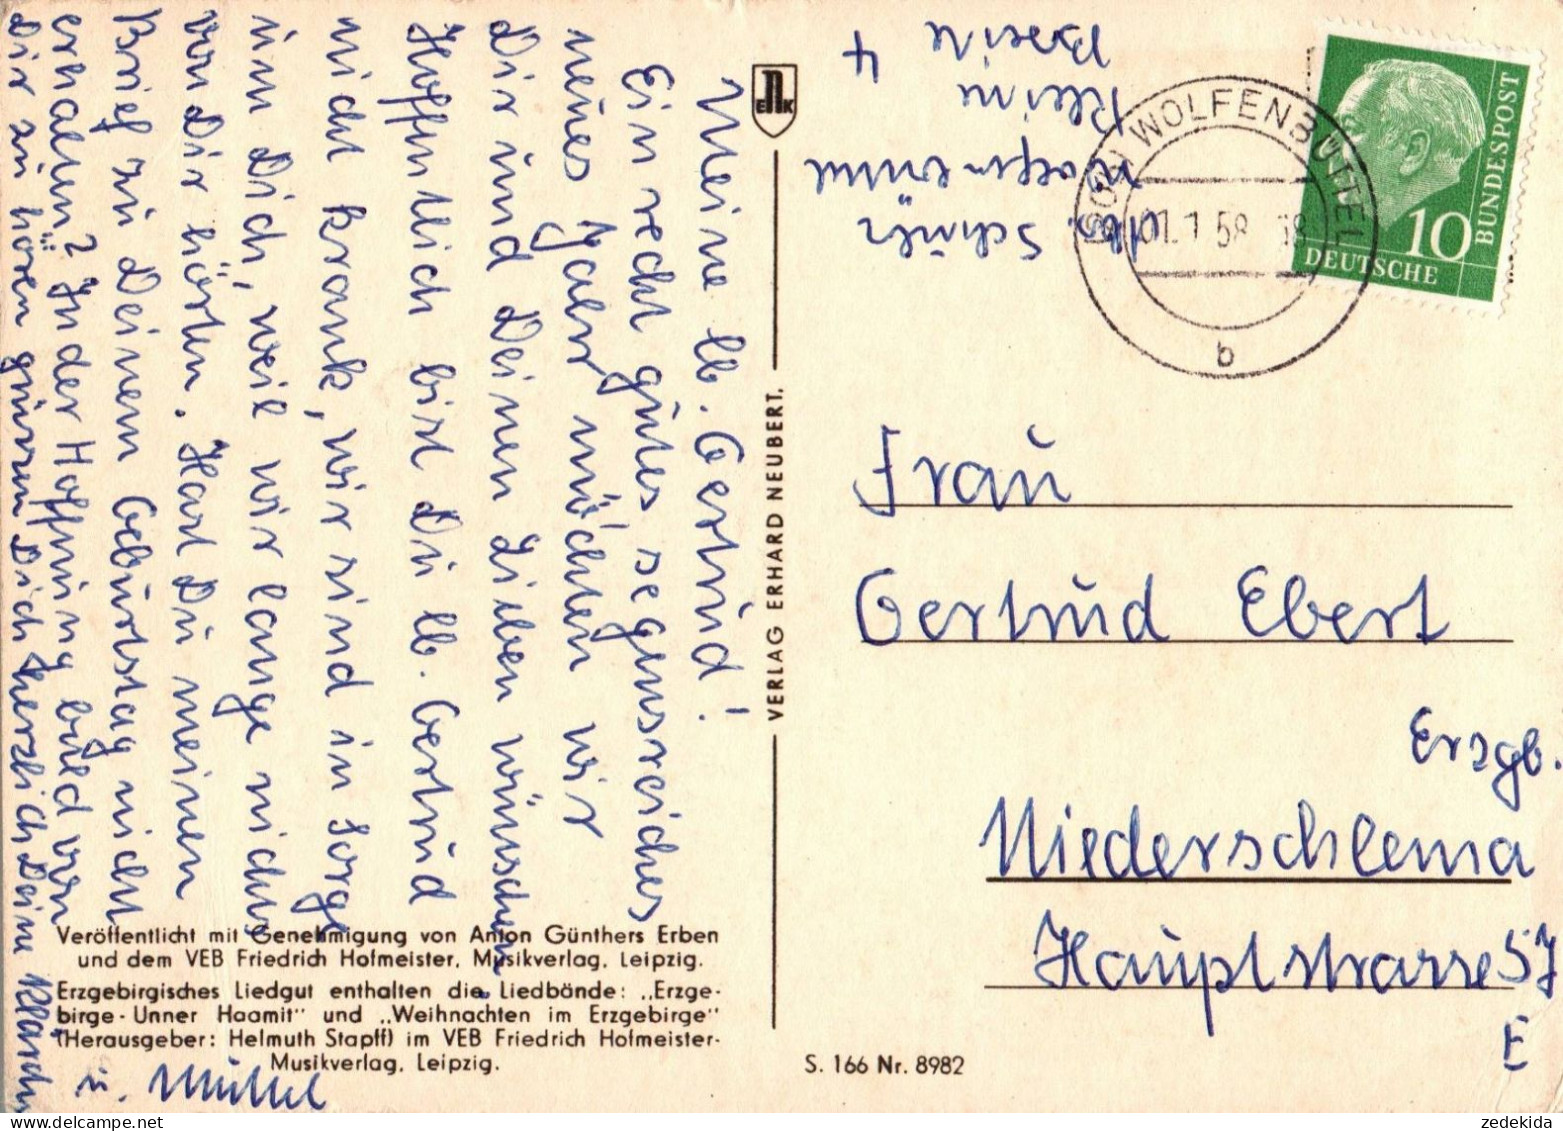 Meine lb. Gertrud!
Ein recht gutes segensreiches
neues Jahr möchten wir
Dir und Deinen Lieben wünschen
Hoffentlich bist Du lb. Gertrud
nicht krank, wir sind in Sorge
um Dich, weil wir lange nichts
von Dir hörten. Hast Du meinen
Brief zu Deinem Geburtstag nicht
erhalten? In der Hoffnung bald von
Dir zu hören grüssen Dich herzlich Deine Klärchen
u.
Veröffentlicht mit Genehmigung von Anton Günthers Erben
und dem VEB Friedrich Hofmeister, Musikverlag, Leipzig.
Erzgebirgisches Liedgut enthalten die Liedbände: „Erzge-
birge-Unner Haamit" und „Weihnachten im Erzgebirge"
(Herausgeber: Helmuth Stapff) im VEB Friedrich Hofmeister-
Musikverlag, Leipzig.
VERLAG ERHARD NEUBERT.
E N K
S. 166 Nr. 8982
Abs. Schmör
Wolfenbüttel
Kleine
Breite
4
WOLFENBÜTTEL
b
10
DEUTSCHE
BUNDESPOST
Frau
Gertrud Ebert
Erzgb.
Niederschlema
Hauptstrasse 57
E
zedekida